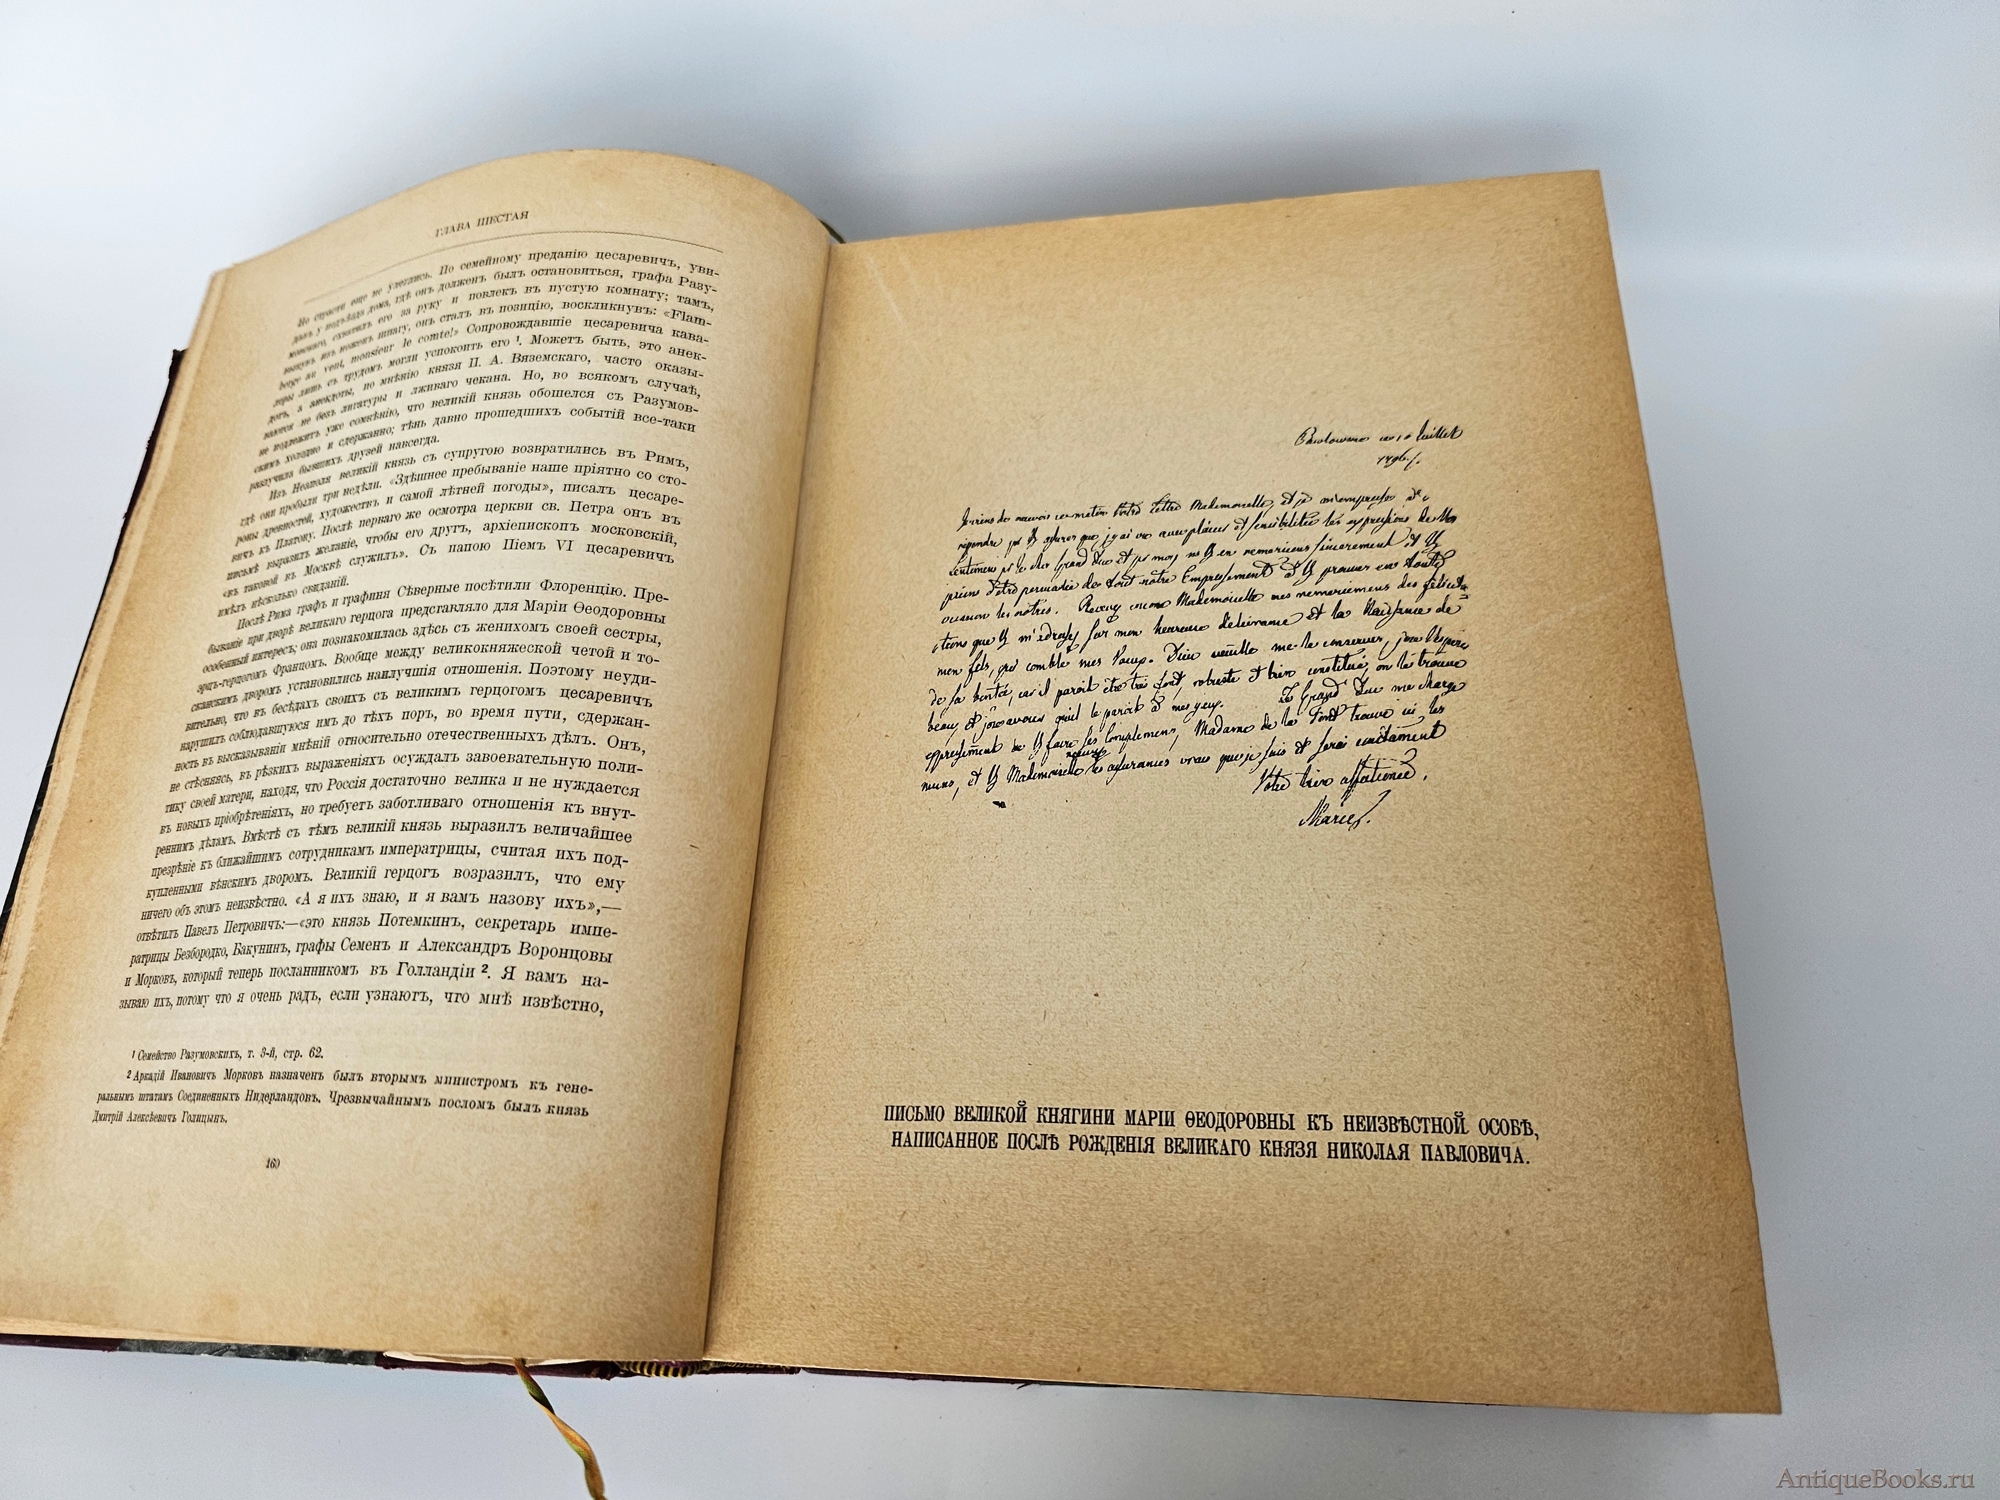 ГЛАВА ШЕСТАЯ
Но страсти еще не улеглись. По семейному преданію цесаревичъ, уви-
давъ у подъѣзда дома, гдѣ онъ долженъ былъ остановиться, графа Разу-
мовскаго, схватилъ его за руку и повлекъ въ пустую комнату; тамъ,
вынувъ изъ ноженъ шпагу, онъ сталъ въ позицію, воскликнувъ: «Flam-
berge au vent, monsieur le comte!» Сопровождавшіе цесаревича кава-
леры лишь съ трудомъ могли успокоить его ¹. Можетъ быть, это анек-
дотъ, а анекдоты, по мнѣнію князя П. А. Вяземскаго, часто оказы-
ваются не безъ лигатуры и лживаго чекана. Но, во всякомъ случаѣ,
не подлежитъ уже сомнѣнію, что великій князь обошелся съ Разумов-
скимъ холодно и сдержанно; тѣнь давно прошедшихъ событій все-таки
разлучила бывшихъ друзей навсегда.
Изъ Неаполя великій князь съ супругою возвратились въ Римъ,
гдѣ они пробыли три недѣли. «Здѣшнее пребываніе наше пріятно со сто-
роны древностей, художествъ и самой лѣтней погоды», писалъ цесаре-
вичъ къ Платону. Послѣ перваго же осмотра церкви св. Петра онъ въ
письмѣ выразилъ желаніе, чтобы его другъ, архіепископъ московскій,
«въ таковой въ Москвѣ служилъ». Съ папою Піемъ VI цесаревичъ
имѣлъ нѣсколько свиданій.
Послѣ Рима графъ и графиня Сѣверные посѣтили Флоренцію. Пре-
бываніе при дворѣ великаго герцога представляло для Маріи Ѳеодоровны
особенный интересъ; она познакомилась здѣсь съ женихомъ своей сестры,
эрцъ-герцогомъ Францомъ. Вообще между великокняжеской четой и то-
сканскимъ дворомъ установились наилучшія отношенія. Поэтому неуди-
вительно, что въ бесѣдахъ своихъ съ великимъ герцогомъ цесаревичъ
нарушилъ соблюдавшуюся имъ до тѣхъ поръ, во время пути, сдержан-
ность въ высказываніи мнѣній относительно отечественныхъ дѣлъ. Онъ,
не стѣсняясь, въ рѣзкихъ выраженіяхъ осуждалъ завоевательную поли-
тику своей матери, находя, что Россія достаточно велика и не нуждается
въ новыхъ пріобрѣтеніяхъ, но требуетъ заботливаго отношенія къ внут-
реннимъ дѣламъ. Вмѣстѣ съ тѣмъ великій князь выразилъ величайшее
презрѣніе къ ближайшимъ сотрудникамъ императрицы, считая ихъ под-
купленными вѣнскимъ дворомъ. Великій герцогъ возразилъ, что ему
ничего объ этомъ неизвѣстно. «А я ихъ знаю, и я вамъ назову ихъ»,—
отвѣтилъ Павелъ Петровичъ:—«это князь Потемкинъ, секретарь импе-
ратрицы Безбородко, Бакунинъ, графы Семенъ и Александръ Воронцовы
и Морковъ, который теперь посланникомъ въ Голландіи ². Я вамъ на-
зываю ихъ, потому что я очень радъ, если узнаютъ, что мнѣ извѣстно,
¹ Семейство Разумовскихъ, т. 3-й, стр. 62.
² Аркадій Ивановичъ Морковъ назначенъ былъ вторымъ министромъ къ гене-
ральнымъ штатамъ Соединенныхъ Нидерландовъ. Чрезвычайнымъ посломъ былъ князь
Дмитрій Алексѣевичъ Голицынъ.
160
ce 10 Juillet
1796
Je viens de recevoir ce matin Votre Lettre Mademoiselle, et je m'empresse d'y
répondre
sentimens le cher Grand Duc et par moi, sincerement et
priens d'être persuadée de tout notre Empressement à prouver en toute
occasion les nôtres. Recevez encore Mademoiselle mes remerciemens des félicita
tions que m'adressez sur mon heureuse délivrance et la Naissance de
mon fils, qui comble mes Voeux. Dieu veuille me le conserver, j'ose l'esperer
de sa bonté, car il paroit être très fort, robuste et bien constitué, on le trouve
beau, et j'ose avouer qu'il le paroit à mes yeux. Le Grand Duc me charge
expressément de faire ses complimens, Madame de la Font trouve ici les
miens, et Mademoiselle recevez les assurances vraies que je suis et serai constament
Votre bien affectionée,
Marie.
ПИСЬМО ВЕЛИКОЙ КНЯГИНИ МАРІИ ѲЕОДОРОВНЫ КЪ НЕИЗВѢСТНОЙ ОСОБѢ,
НАПИСАННОЕ ПОСЛѢ РОЖДЕНІЯ ВЕЛИКАГО КНЯЗЯ НИКОЛАЯ ПАВЛОВИЧА.
AntiqueBooks.ru